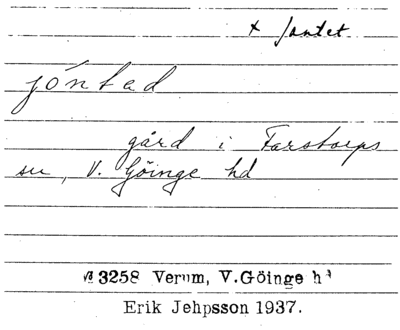 + Jontet
jóntad
gård i Farstorps
sn, V. Göinge hd
3258 Verum, V.Göinge hd
Erik Jehpsson 1937.